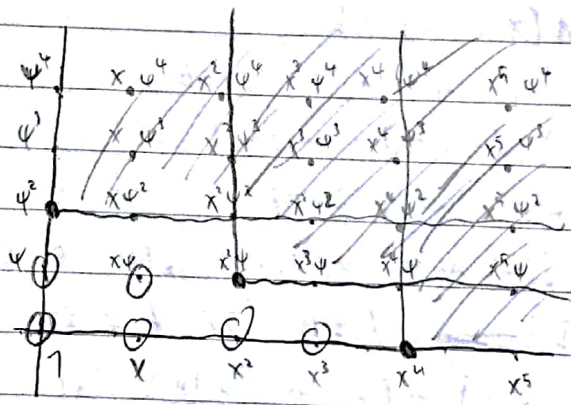 ψ⁴ xψ⁴ x²ψ⁴ x³ψ⁴ x⁴ψ⁴ x⁵ψ⁴
ψ³ xψ³ x²ψ³ x³ψ³ x⁴ψ³ x⁵ψ³
ψ² xψ² x²ψ² x³ψ² x⁴ψ² x⁵ψ²
ψ xψ x²ψ x³ψ x⁴ψ x⁵ψ
1 x x² x³ x⁴ x⁵